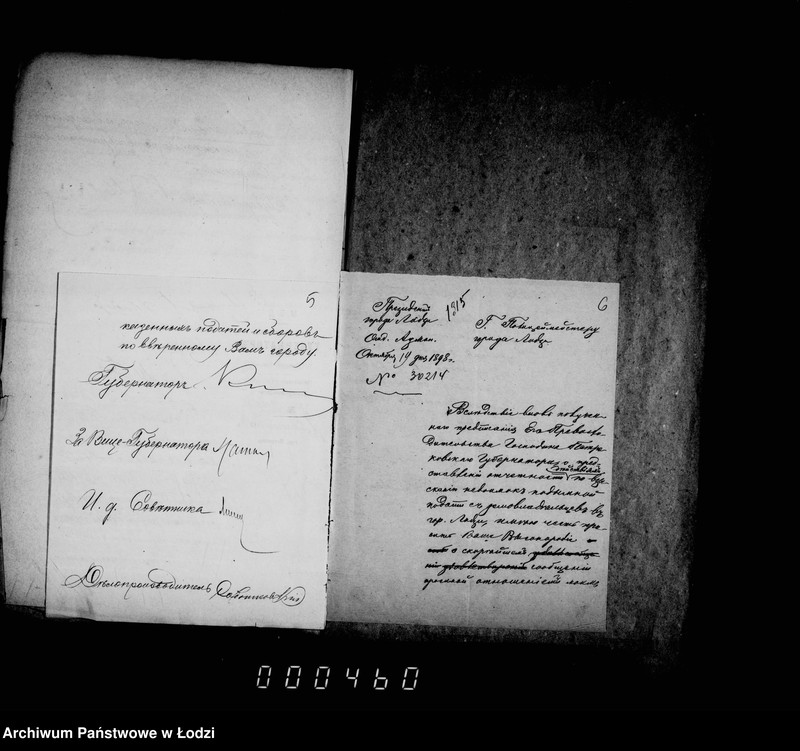 5
казенныхъ податей и сборовъ
по ввѣренному Вамъ городу.
Губернаторъ
За Вице-Губернатора
И. д. Совѣтника
Дѣлопроизводитель
6
Президентъ
города Лодзи
Отд. Админ.
Октября 19 дня 1898 г.
№ 30214
1315
Г. Полицеймейстеру
города Лодзи
Вслѣдствіе вновь получен
наго предписанія Его Превосхо
дительства Господина Петро
ковскаго Губернатора о пред
ставленіи отчетности по взы
сканію недоимокъ подымной
подати съ домовладѣльцевъ въ
гор. Лодзи, имѣю честь про
сить Ваше Высокородіе
о скорѣйшемъ
сообщеніи
срочной отношеніемъ моимъ
000460
Archiwum Państwowe w Łodzi